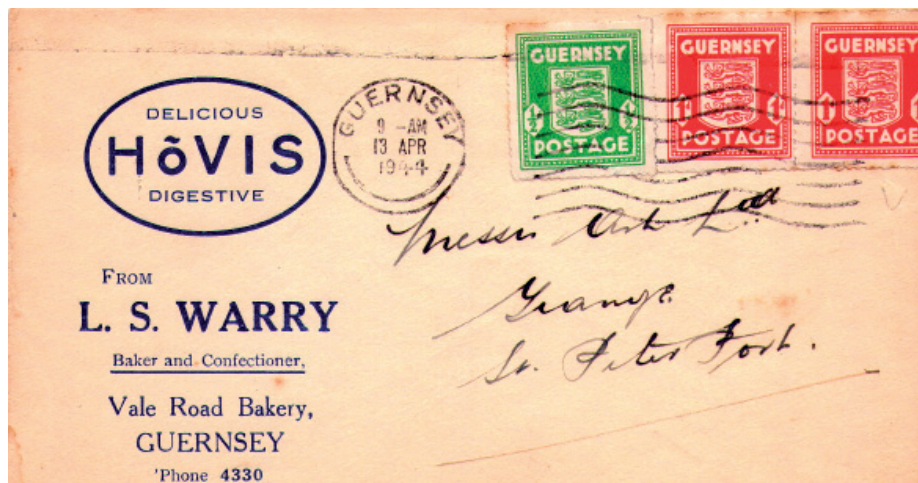 DELICIOUS
HõVIS
DIGESTIVE
GUERNSEY
9 - AM
13 APR
1944
GUERNSEY
½ ½
POSTAGE
GUERNSEY
1ᴰ 1ᴰ
POSTAGE
GUERNSEY
POSTAGE
Messrs Ltd
Grange
St. Peter Port.
FROM
L. S. WARRY
Baker and Confectioner,
Vale Road Bakery,
GUERNSEY
'Phone 4330